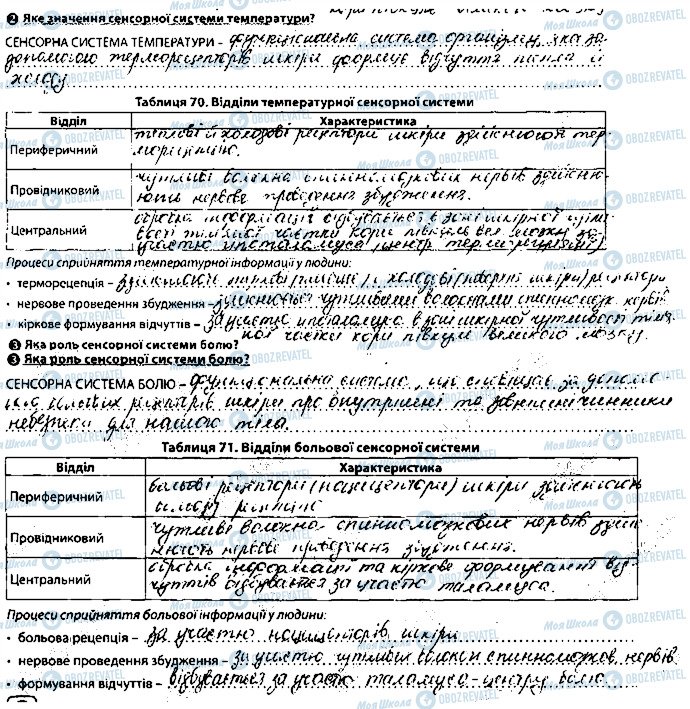 ❷ Яке значення сенсорної системи температури?
СЕНСОРНА СИСТЕМА ТЕМПЕРАТУРИ – функціональна система організму, яка за
допомогою терморецепторів шкіри формує відчуття тепла й
холоду
Таблиця 70. Відділи температурної сенсорної системи
Відділ Характеристика
Периферичний теплові й холодові рецептори шкіри здійснюють тер-
морецепцію.
Провідниковий чутливі волокна спинномозкових нервів здійсн-
юють нервове проведення збудження.
Центральний обробка інформації відбувається в зоні шкірної чутли-
вості тім'яної частки кори півкуль
участю гіпоталамуса (центр терморегуляції)
Процеси сприйняття температурної інформації у людини:
• терморецепція – холодові рецептори
• нервове проведення збудження – чутливими волокнами спинномозк. нервів
• кіркове формування відчуттів – за участю гіпоталамуса в зоні шкірної чутливості тім'я-
ної частки кори півкуль великого мозку.
❸ Яка роль сенсорної системи болю?
❸ Яка роль сенсорної системи болю?
СЕНСОРНА СИСТЕМА БОЛЮ – функціональна система, що сповіщає за допомо-
гою больових рецепторів шкіри про внутрішні та зовнішні чинники
небезпеки для нашого тіла.
Таблиця 71. Відділи больової сенсорної системи
Відділ Характеристика
Периферичний больові рецептори (ноцицептори) шкіри здійснюють
больову рецепцію
Провідниковий чутливі волокна спинномозкових нервів здійс-
нюють нервове проведення збудження.
Центральний обробка інформації та кіркове формування від-
чуттів відбувається за участю таламуса.
Процеси сприйняття больової інформації у людини:
• больова рецепція – за участю ноцицепторів шкіри
• нервове проведення збудження – за участю чутливих волокон спинномозков. нервів
• формування відчуттів – відбувається за участю таламуса – центру болю
Моя Школа OBOZREVATEL